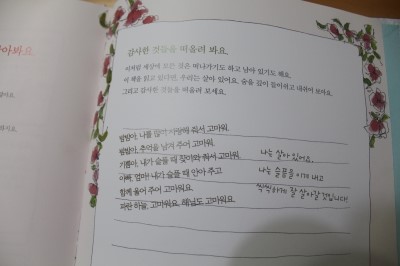 아봐요.
감사한 것들을 떠올려 봐요.
이처럼 세상에 모든 것은 떠나가기도 하고 남아 있기도 해요.
이 책을 읽고 있다면, 우리는 살아 있어요. 숨을 깊이 들이쉬고 내쉬어 보아요.
그리고 감사한 것들을 떠올려 보세요.
밤밤아, 나를 많이 사랑해 줘서 고마워.
밤밤아, 추억을 남겨 주어 고마워.
기쁨아, 내가 슬플 때 찾아와 줘서 고마워.
아빠, 엄마! 내가 슬플 때 안아 주고
함께 울어 주어 고마워요.
파란 하늘, 고마워요. 해님도 고마워요.
나는 살아 있어요.
나는 슬픔을 이겨 내고
씩씩하게 잘 살아갈 것입니다!